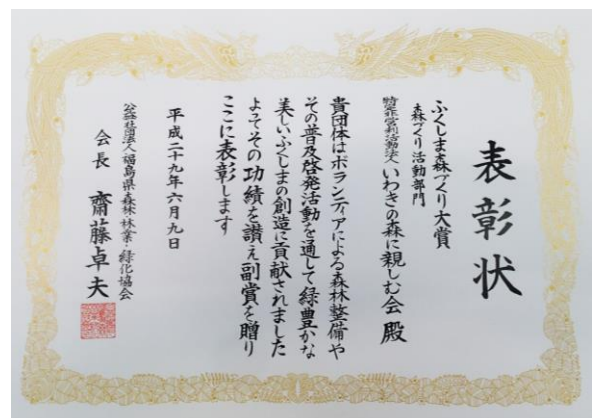 表彰状
ふくしま森づくり大賞
森づくり活動部門
特定非営利活動法人 いわきの森に親しむ会 殿
貴団体はボランティアによる森林整備や
その普及啓発活動を通して緑豊かな
美しいふくしまの創造に貢献されました
よってその功績を讃え副賞を贈り
ここに表彰します
平成二十九年六月九日
公益社団法人福島県森林・林業・緑化協会
会長 齋藤卓夫